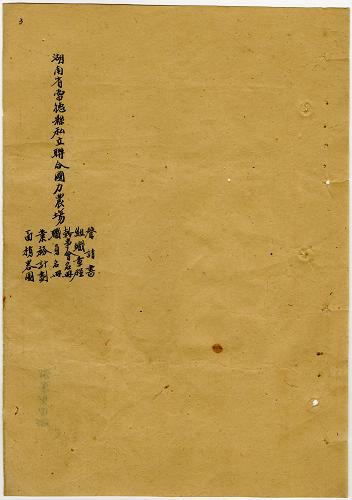 3
湖南省常德縣私立聯合國力農場
聲請書
組織章程
事會名冊
職員名冊
業務計劃
面積畧圖